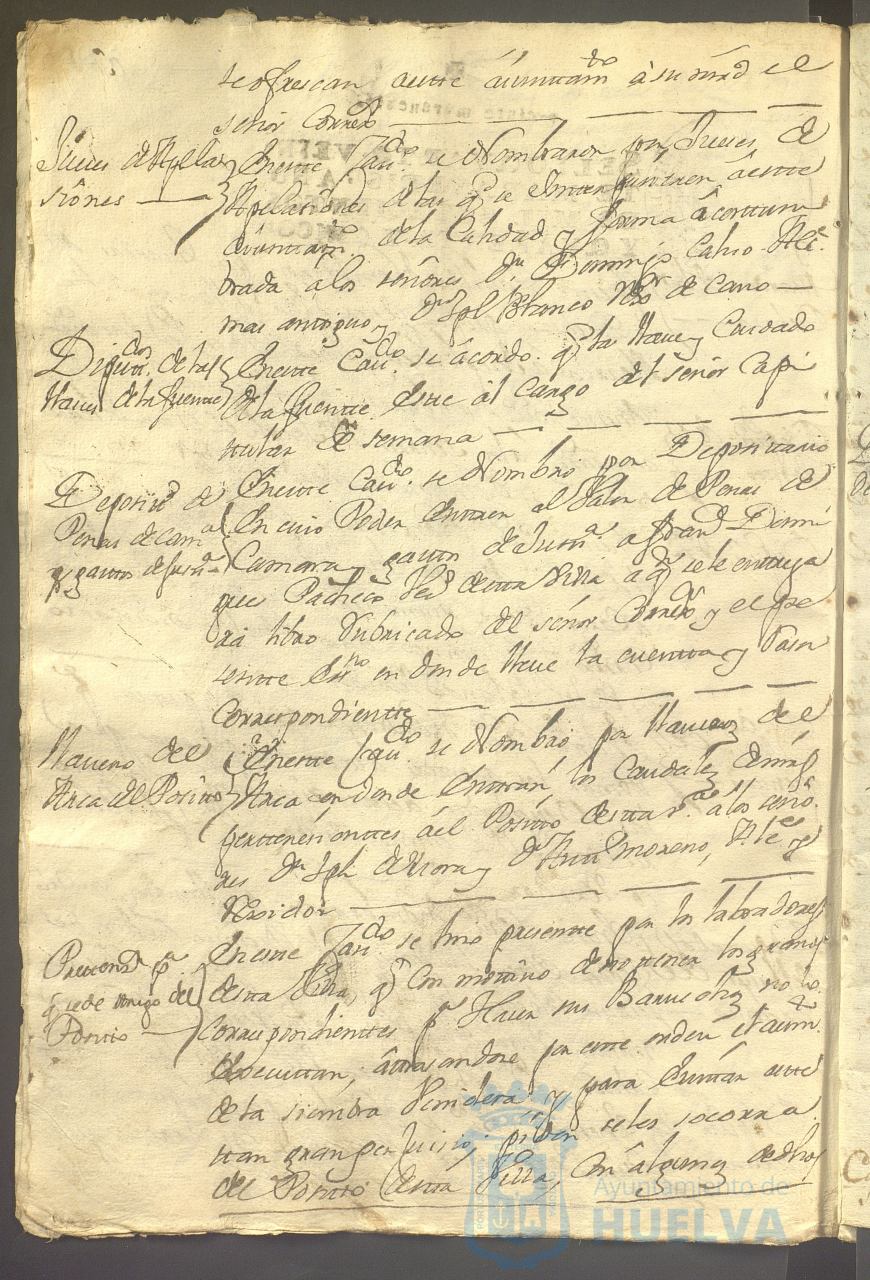 se ofrescan a este aiuntam.to a su mrd el
señor Correx.or
Jueses de Apella
siones
En este Cav.do se Nombraron por Jueses de
Apelasiones de las q.e se Interpusieren a este
aiuntam.to de la Calidad y forma acostum
brada a los señores D.n Domingo Calvo Alc.e
mas antiguo y D.n Jph Blanco Rex.or de Cano
Diputa.dos de las
llaves de la fuente
En este Cav.do se acordo q.e la llave y Cuidado
de la fuente este al Cargo del señor Capi
tular de semana
Deposit.o de
Penas de Cam.a
y gastos de Just.a
En este Cav.do se Nombro por Depositario
En cuio Poder entren el Valor de Penas de
Camara y gastos de Just.a a Fran.co Domi
gues Pacheco Ves.o de esta Villa a q.n se le entrega
ra libro Rubricado del señor Correx.or y el pre
sente Es.no en donde lleve la cuenta y Rason
Correspondiente
Llavero del
Arca del Posito
En este Cav.do se Nombro por llaveros de el
Arca en donde Entraran los Caudales de mas
pertenesientes a el Posito de esta V.a a los seño
res D.n Jph de Mora y D.n Ant.o Moreno, Alc.e y
Rexidor
Pretens.n p.a
q. se de trigo del
Posito
En este Cav.do se hiso presente por los labradores
de esta Villa, q.e Con motivo de no tener los granos
Correspondientes p.a Haser sus Barvechos no lo
Executan, atrasandose por este orden el aum.to
de la siembra Venidera y para Evitar este
tan gran perjuisio, piden se les socorra
del Posito de esta Villa, Con algunas de dhos
Ayuntamiento de
HUELVA